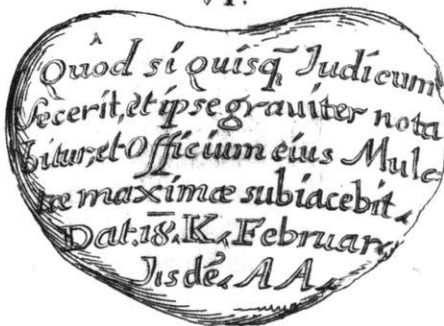 VI.
Quòd si quisq̃ Judicum
fecerit, et ipse graviter nota
bitur, et Officium eius Mulc
tæ maximæ subiacebit.
Dat. 18. K. Februar.
Jisdẽ. AA.